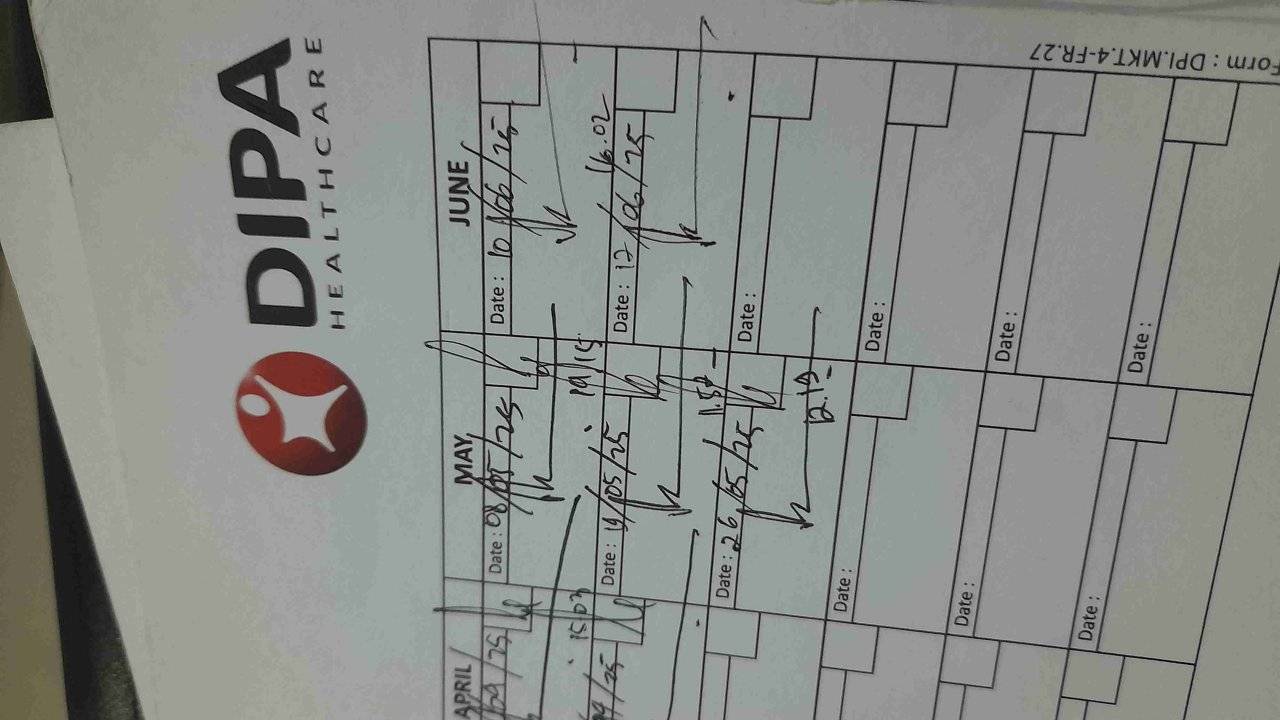 DIPA
HEALTHCARE
Form : DPI.MKT.4-FR.27
APRIL
MAY
JUNE
/25
Date : 08/05/25
Date : 10/06/25
15.03
19.15
16.02
/25
Date : 19/05/25
Date : 12/06/25
Date : 26/05/25
Date :
12.19
Date :
Date :
Date :
Date :
Date :
Date :